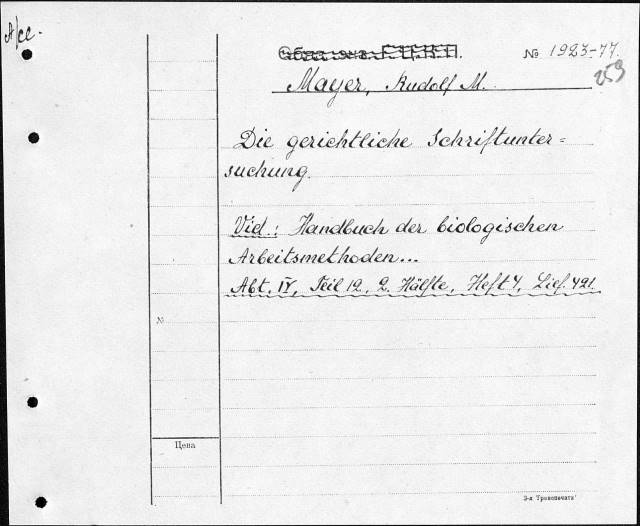 A/cc.
№ 1923-77.
259
Mayer, Rudolf M.
Die gerichtliche Schriftunter=
suchung.
Vid.: Handbuch der biologischen
Arbeitsmethoden...
Abt. IV, Teil 12, 2. Hälfte, Heft 7, Lief. 421.
№
Цена
3-я Транспечати